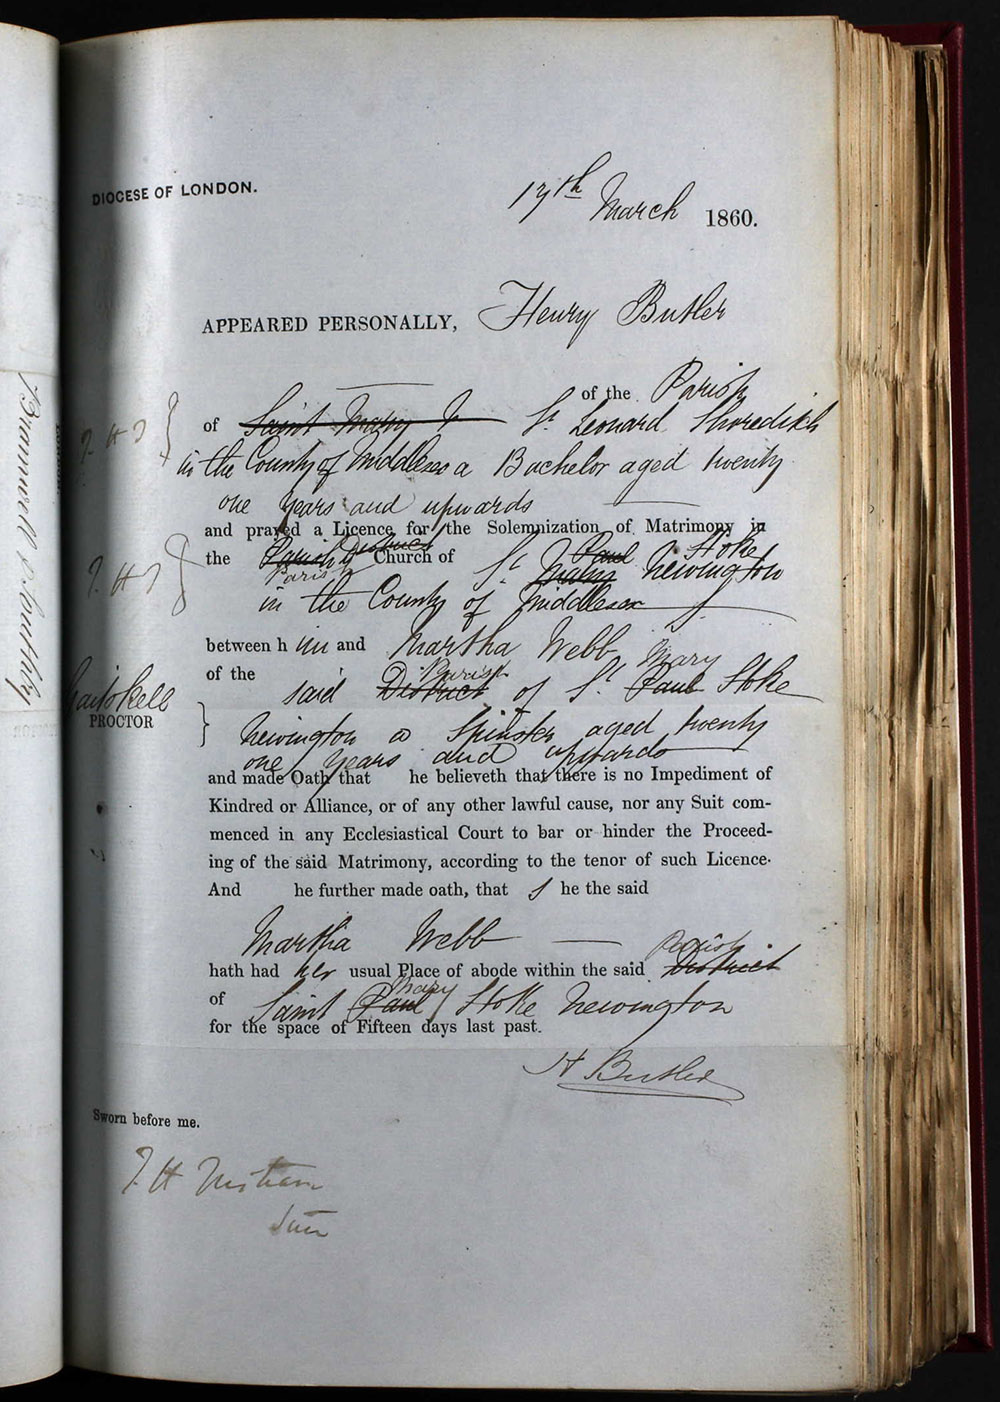 DIOCESE OF LONDON.
17th March 1860.
APPEARED PERSONALLY, Henry Butler
of the Parish
of Saint Mary N St Leonard Shoreditch
in the County of Middlesex a Bachelor aged twenty
one years and upwards
and prayed a Licence for the Solemnization of Matrimony in
the Parish District Parish Church of St Paul Mary Stoke Newington
in the County of Middlesex
between h im and Martha Webb
of the said District Parish of St Paul Mary Stoke
Newington a Spinster aged twenty
one years and upwards
and made Oath that he believeth that there is no Impediment of
Kindred or Alliance, or of any other lawful cause, nor any Suit com-
menced in any Ecclesiastical Court to bar or hinder the Proceed-
ing of the said Matrimony, according to the tenor of such Licence.
And he further made oath, that s he the said
Martha Webb
hath had her usual Place of abode within the said District Parish
of Saint Paul Mary Stoke Newington
for the space of Fifteen days last past.
H Butler
Sworn before me.
T H
Surr
PROCTOR
T. H T
T. H T
Bramwell